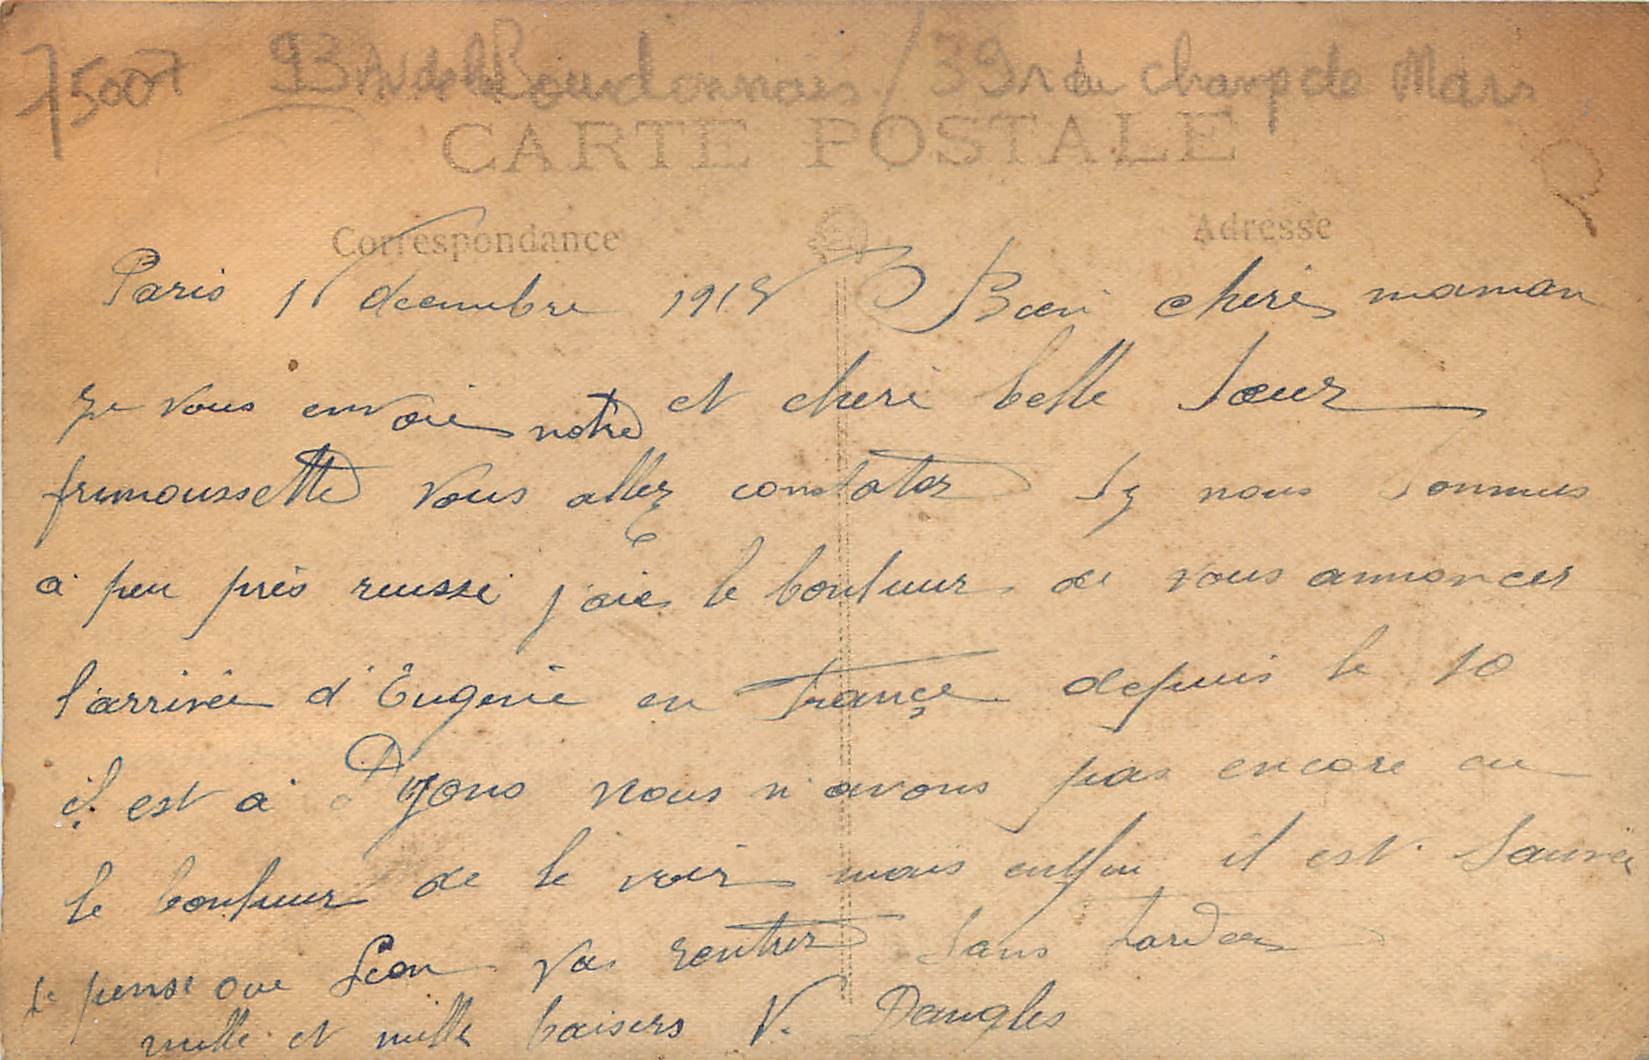 75007 93 Av de la Bourdonnais / 39 r du Champ de Mars
CARTE POSTALE
Correspondance
Adresse
Paris 1 decembre 1918 Bien cheri maman
Je vous envoie notre et cheri belle Sœur
frimoussette vous allez constater Sy nous Sommes
a peu près reussi j'aie le bonheur de vous annoncer
l'arrivée d'Eugenie en France depuis le 10
il est a Dyons nous n'avons pas encore eu
le bonheur de le voir mais enfin il est Sauvée
Je pense que Léon vas rentrer Sans tarder
mille et mille baisers V. Dangles